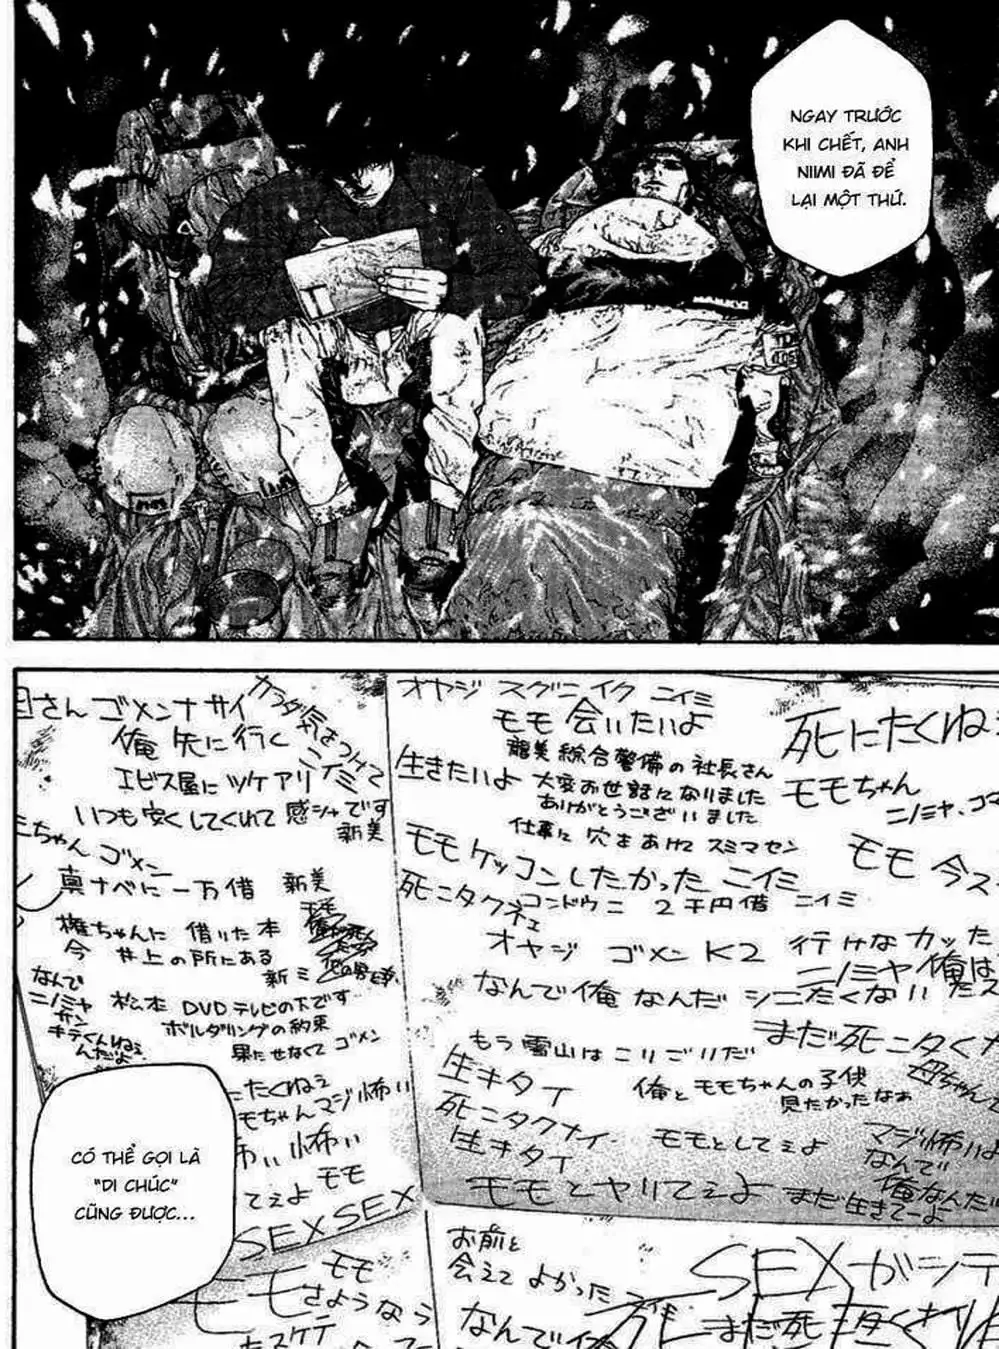 NGAY TRƯỚC
KHI CHẾT, ANH
NIIMI ĐÃ ĐỂ
LẠI MỘT THỨ.
さん ゴメンナサイ
カラダ気をつけて
ニイミ
俺 先に行く
エビス屋に ツケアリ
いつも安くしてくれて 感シャです
新美
ちゃん ゴメン
真ナベに 一万借 新美
権ちゃんに 借りた本
今 井上の所にある
新ミ
なんで
ニノミヤ
サン
キテくんねぇ
んだよ
松本 DVDテレビの下です
ボルダリングの約束
果たせなくて ゴメン
にたくねぇ
モちゃんマジ怖い
怖い 怖い
モモ
てぇよ
SEX SEX
モモ
モモさようなら
タスケテ
オヤジ スグニイク ニイミ
モモ 会いたいよ
生きたいよ
龍美綜合警備の社長さん
大変お世話になりました
ありがとうございました
仕事に 穴をあけて スミマセン
モモケッコンしたかった ニイミ
死ニタクネェ
コンドウニ 2千円借 ニイミ
オヤジ ゴメン K2 行けなカッた
ニノミヤ 俺は
なんで俺なんだ シニたくない
まだ死ニタくな
もう雪山はこりごりだ
生キタイ
俺とモモちゃんの子供
見たかったなあ
母ちゃん
死ニタクナイ
生キタイ
モモとしてぇよ
マジ怖いよ
なんで
俺なんだ
モモとヤりてぇよ
まだ生きてーよ
死にたくねぇ
モモちゃん
ニノミヤ、ゴ
モモ 今ス
お前と
会えて よかった
なんで俺
SEXがシテ
まだ死
CÓ THỂ GỌI LÀ
"DI CHÚC"
CŨNG ĐƯỢC...